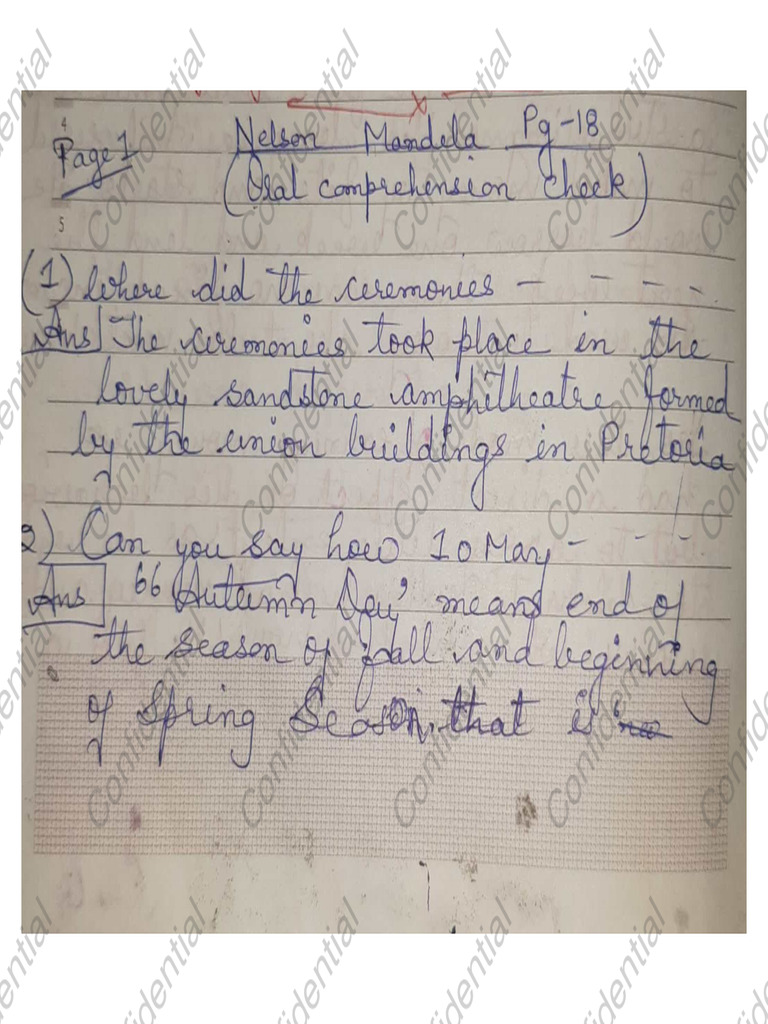 Page 1
Nelson Mandela Pg-18
(Oral comprehension check)
(1) Where did the ceremonies - - - - -
Ans The ceremonies took place in the
lovely sandstone amphitheatre formed
by the union buildings in Pretoria
2) Can you say how 10 May - - - -
Ans "Autumn Day' means end of
the season of fall and beginning
of Spring Season, that is
4
5
Confidential